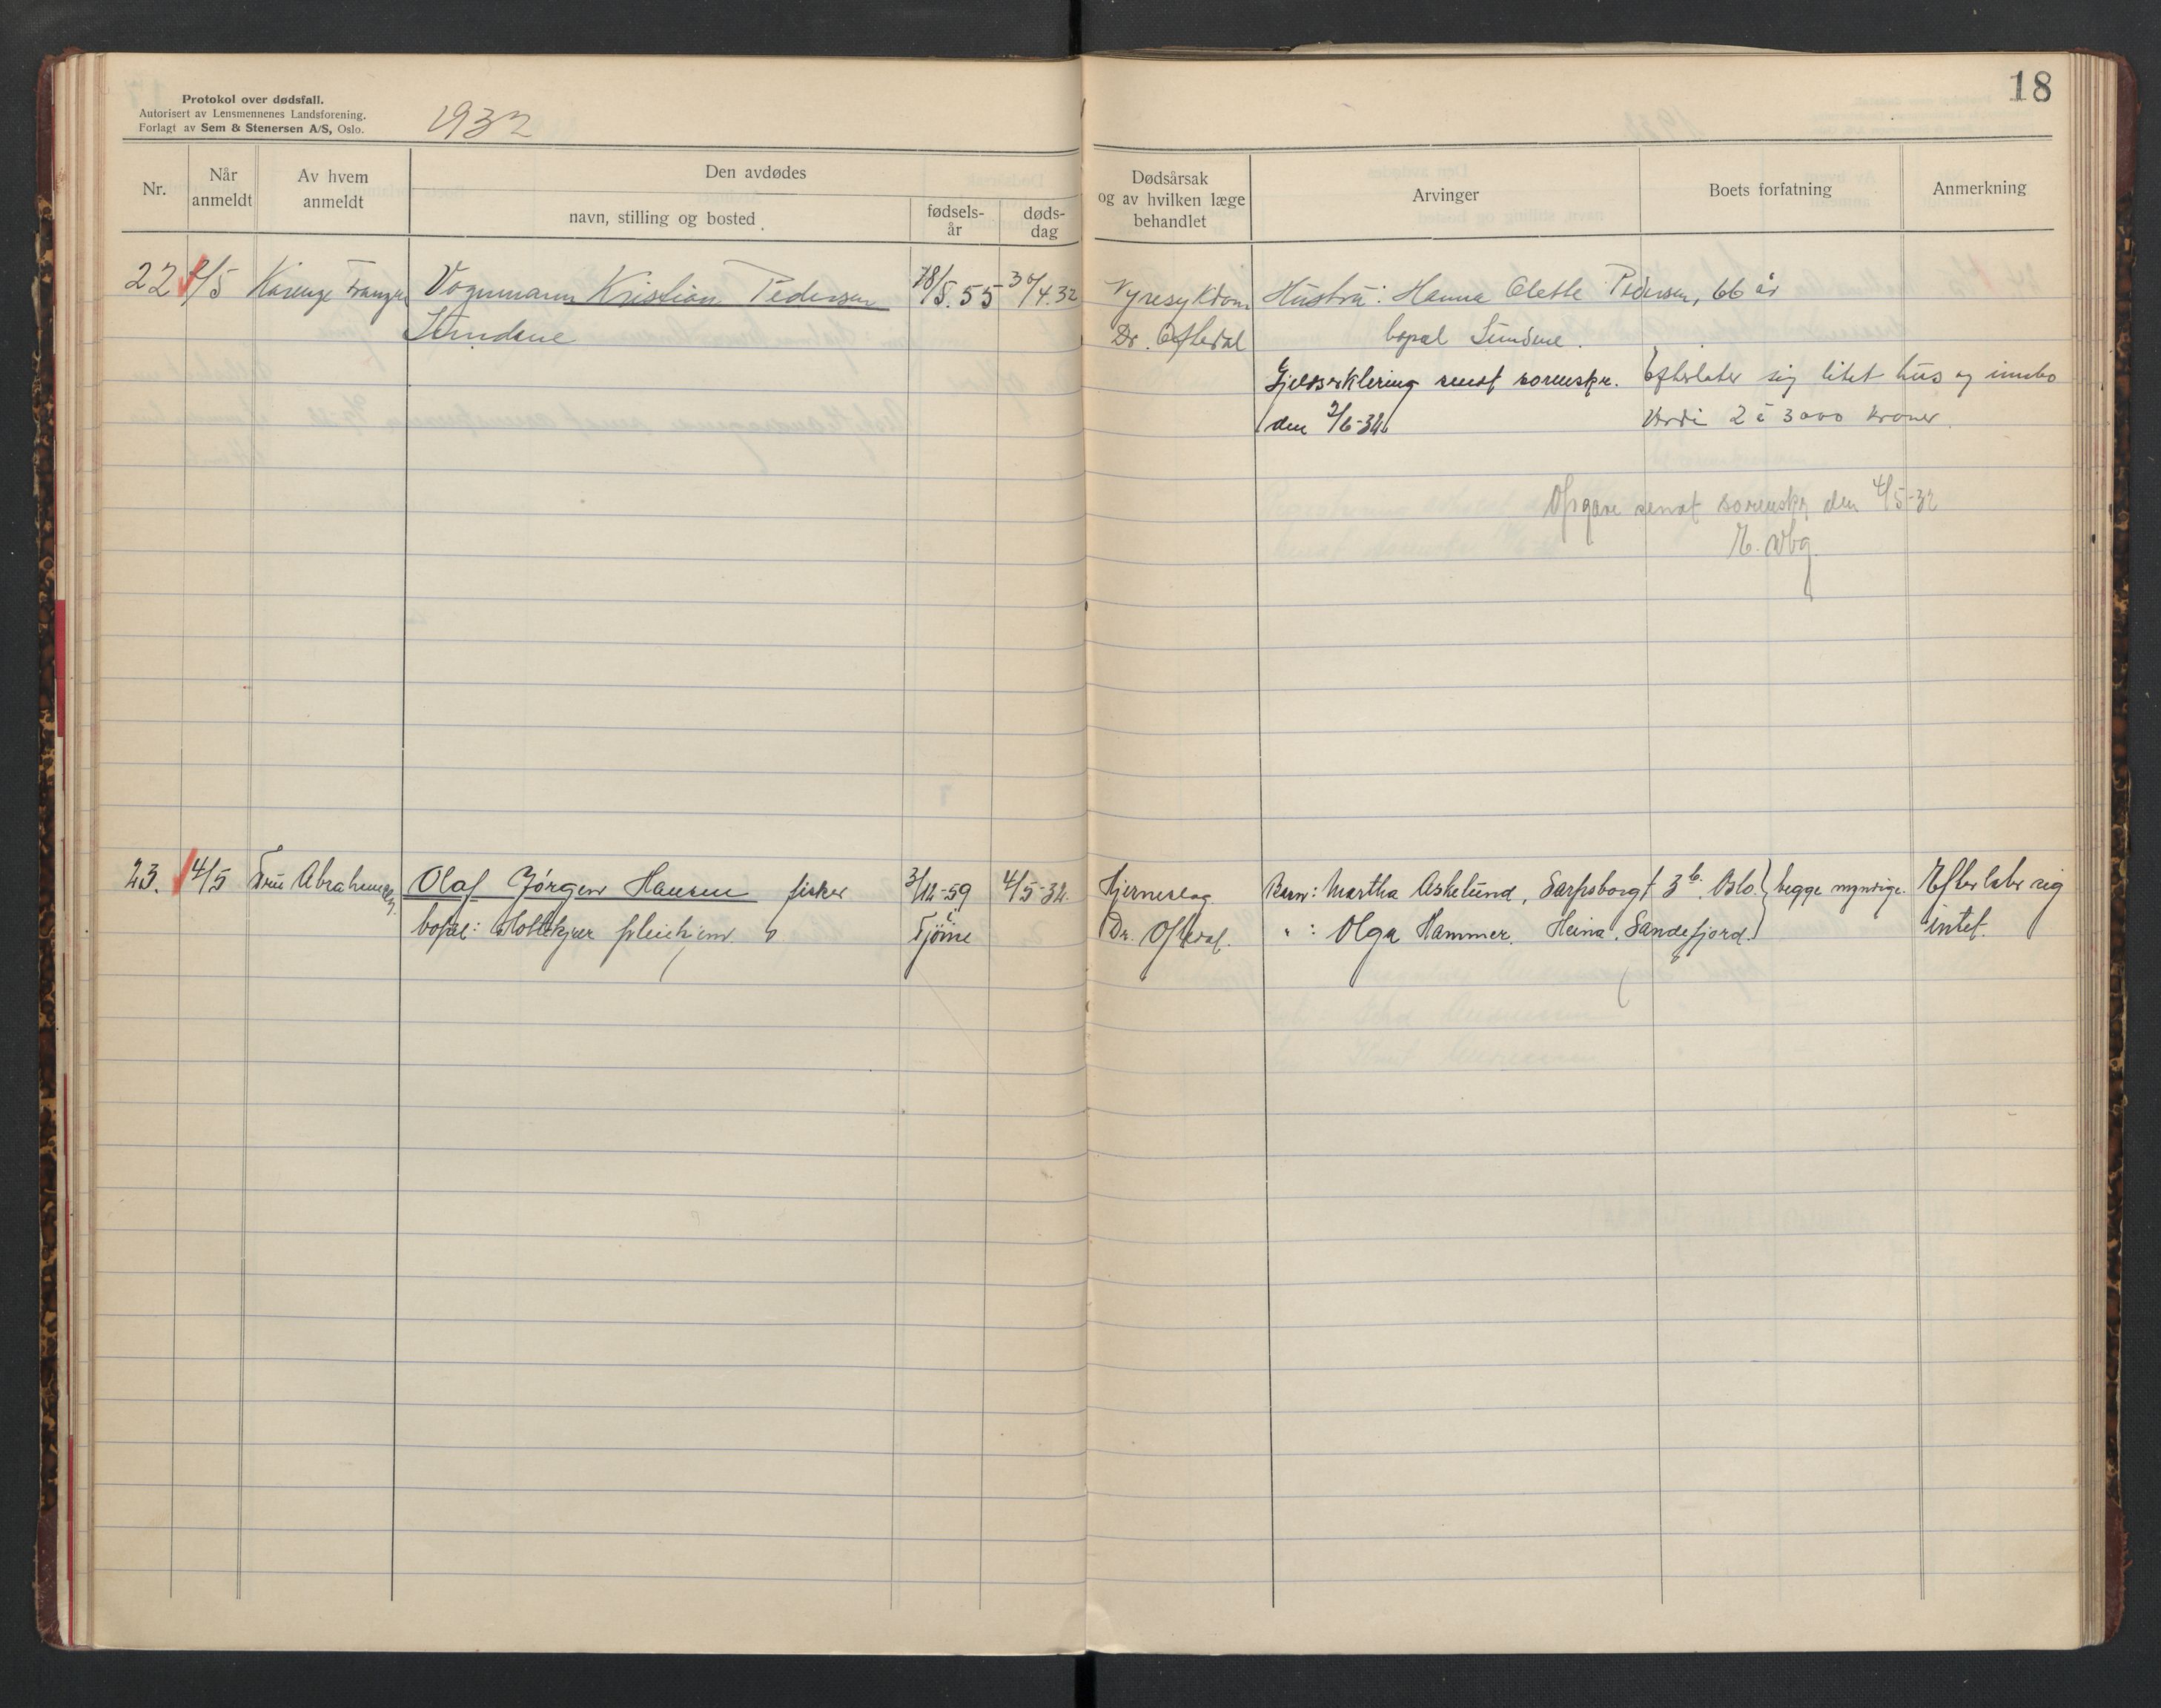 18
Protokol over dødsfall.
Autorisert av Lensmennenes Landsforening.
Forlagt av Sem & Stenersen A/S, Oslo.
1932
Nr.
Når anmeldt
Av hvem anmeldt
Den avdødes
navn, stilling og bosted
fødsels-år
døds-dag
Dødsårsak og av hvilken læge behandlet
Arvinger
Boets forfatning
Anmerkning
22 2/5 Vognmann Kristian Pedersen 18/5.55 30/4.32 Nyresykdom Hustru: Hanna Olette Pedersen, 66 år
Sundene Dr. Oftedal bopæl Sundene.
Gjeldserklering sendt sorenskr. Efterlater sig litet hus og innbo
den 2/6-32 Verdi 2 à 3000 kroner.
Opgave sendt sorenskr. den 4/5-32
23. 4/5 Fru Abrahamsen Olaf Jørgen Hansen fisker 3/12-59 4/5-32. Hjerneslag Barn: Martha Askelund, Sarpsborggt 3 b. Oslo. begge myndige. Efterlater sig
bopæl: Holtekjær pleiehjem Tjöme Dr. Oftedal. " : Olga Hammer. Heina, Sandefjord. intet.